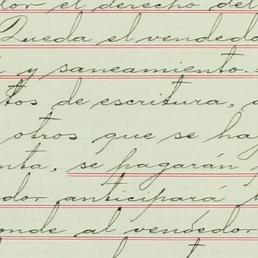 dor el derecho del
Queda el vendedo
y saneamiento.
tos de escritura,
otros que se ha
nta, se pagarán
dor anticipará
onde al vendedor